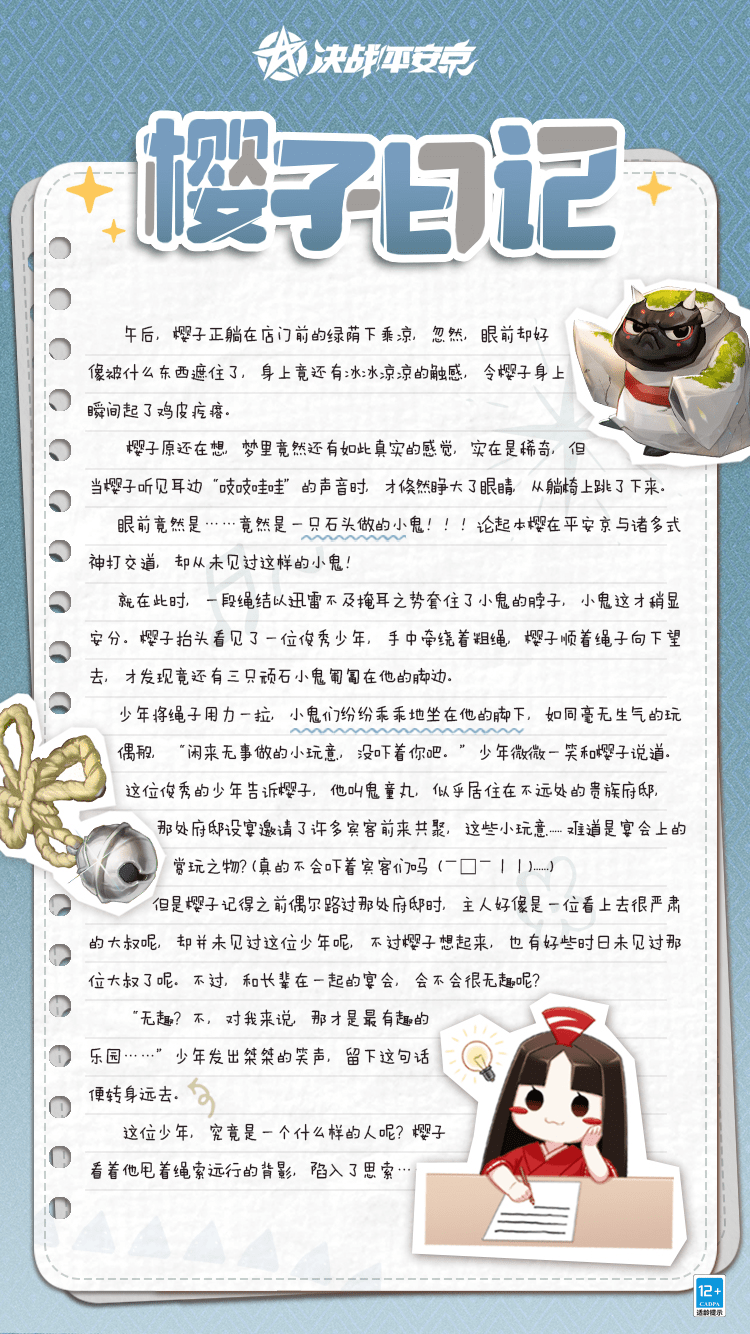 决战!平安京
樱子日记
午后，樱子正躺在店门前的绿荫下乘凉，忽然，眼前却好
像被什么东西遮住了，身上竟还有冰冰凉凉的触感，令樱子身上
瞬间起了鸡皮疙瘩。
樱子原还在想，梦里竟然还有如此真实的感觉，实在是稀奇，但
当樱子听见耳边“吱吱哇哇”的声音时，才倏然睁大了眼睛，从躺椅上跳了下来。
眼前竟然是……竟然是一只石头做的小鬼！！！论起本樱在平安京与诸多式
神打交道，却从未见过这样的小鬼！
就在此时，一段绳结以迅雷不及掩耳之势套住了小鬼的脖子，小鬼这才稍显
安分。樱子抬头看见了一位俊秀少年，手中牵绕着粗绳，樱子顺着绳子向下望
去，才发现竟还有三只顽石小鬼匍匐在他的脚边。
少年将绳子用力一拉，小鬼们纷纷乖乖地坐在他的脚下，如同毫无生气的玩
偶般，“闲来无事做的小玩意，没吓着你吧。”少年微微一笑和樱子说道。
这位俊秀的少年告诉樱子，他叫鬼童丸，似乎居住在不远处的贵族府邸，
那处府邸设宴邀请了许多宾客前来共聚，这些小玩意……难道是宴会上的
赏玩之物？(真的不会吓着宾客们吗 (￣□￣||)……)
但是樱子记得之前偶尔路过那处府邸时，主人好像是一位看上去很严肃
的大叔呢，却并未见过这位少年呢，不过樱子想起来，也有好些时日未见过那
位大叔了呢。不过，和长辈在一起的宴会，会不会很无趣呢？
“无趣？不，对我来说，那才是最有趣的
乐园……”少年发出桀桀的笑声，留下这句话
便转身远去。
这位少年，究竟是一个什么样的人呢？樱子
看着他甩着绳索远行的背影，陷入了思索…
12+
CADPA
适龄提示